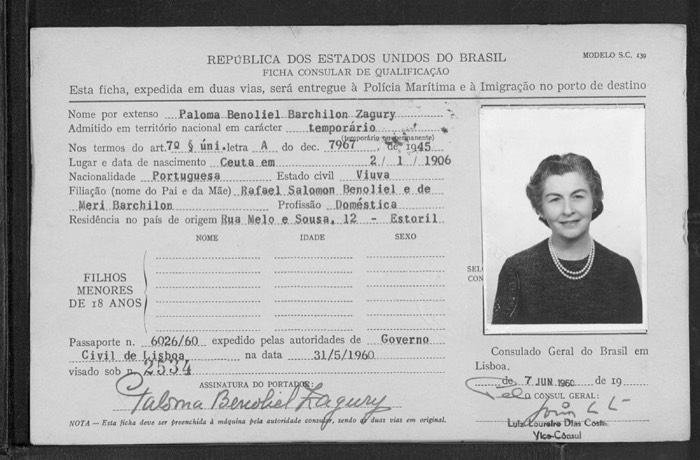 REPÚBLICA DOS ESTADOS UNIDOS DO BRASIL
MODELO S.C. 139
FICHA CONSULAR DE QUALIFICAÇÃO
Esta ficha, expedida em duas vias, será entregue à Polícia Marítima e à Imigração no porto de destino
Nome por extenso Paloma Benoliel Barchilon Zagury
Admitido em território nacional em carácter temporário
(temporário ou permanente)
Nos termos do art. 7º § úni. letra A do dec. 7967, de 1945
Lugar e data de nascimento Ceuta em 2/1/1906
Nacionalidade Portuguesa Estado civil Viuva
Filiação (nome do Pai e da Mãe) Rafael Salomon Benoliel e de
Meri Barchilon Profissão Doméstica
Residência no país de origem Rua Melo e Sousa, 12 - Estoril
NOME IDADE SEXO
FILHOS
MENORES
DE 18 ANOS
Passaporte n. 6026/60 expedido pelas autoridades de Governo
Civil de Lisboa na data 31/5/1960
visado sob n. 2534
ASSINATURA DO PORTADOR:
Paloma Benoliel Zagury
NOTA — Esta ficha deve ser preenchida à máquina pela autoridade consular, sendo as duas vias em original.
Consulado Geral do Brasil em
Lisboa.
de 7 JUN 1960 de 19
Pelo O CONSUL GERAL:
Luiz Loureiro Dias Costa
Vice-Cônsul